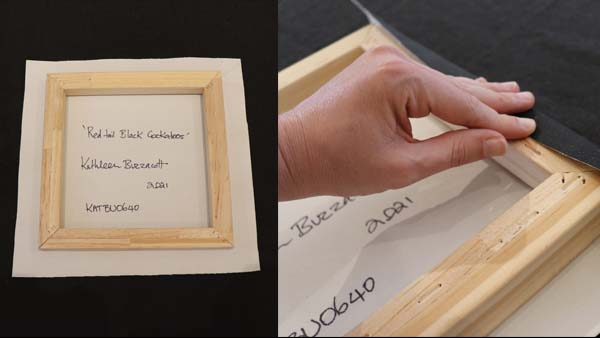 'Red-tail Black Cockatoos'
Kathleen Buzzacott
2021
KATBU0640
n Buzza
2021
BU0640